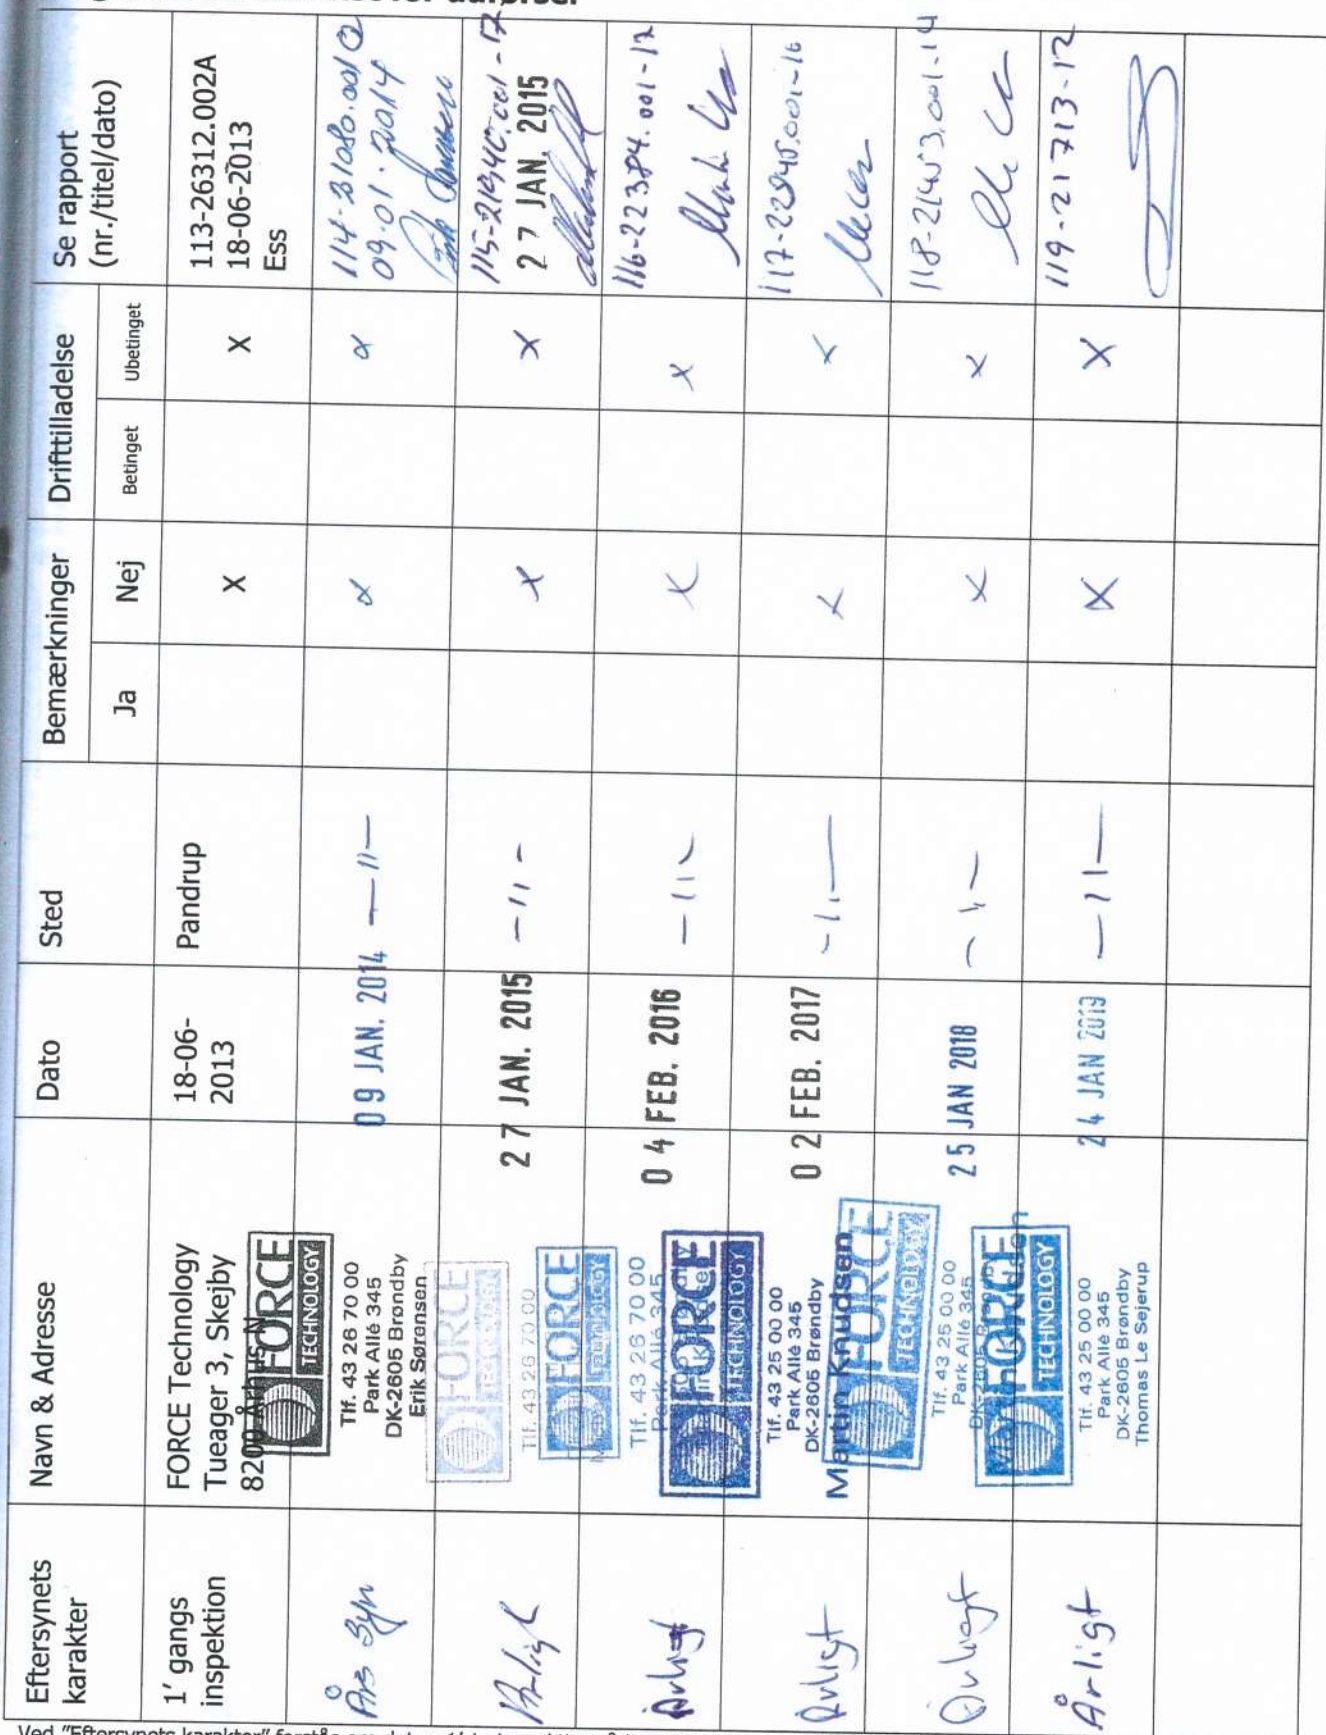 Eftersynets karakter
Navn & Adresse
Dato
Sted
Bemærkninger
Ja
Nej
Drifttilladelse
Betinget
Ubetinget
Se rapport
(nr./titel/dato)
1' gangs
inspektion
FORCE Technology
Tueager 3, Skejby
8200 Århus N
18-06-
2013
Pandrup
X
X
113-26312.002A
18-06-2013
Ess
Års Syn
FORCE
TECHNOLOGY
Tlf. 43 26 70 00
Park Allé 345
DK-2605 Brøndby
Erik Sørensen
09 JAN. 2014
—11—
x
x
09.01.2014
Årligt
FORCE
TECHNOLOGY
Tlf. 43 26 70 00
27 JAN. 2015
-11-
x
x
27 JAN. 2015
Årligt
FORCE
TECHNOLOGY
Tlf. 43 26 70 00
Park Allé 345
04 FEB. 2016
-11-
x
x
116-22384.001-12
Årligt
FORCE
TECHNOLOGY
Tlf. 43 25 00 00
Park Allé 345
DK-2605 Brøndby
Martin Knudsen
02 FEB. 2017
-11-
x
x
Årligt
FORCE
TECHNOLOGY
Tlf. 43 25 00 00
Park Allé 345
25 JAN 2018
-11-
x
x
Årligt
FORCE
TECHNOLOGY
Tlf. 43 25 00 00
Park Allé 345
DK-2605 Brøndby
Thomas Le Sejerup
24 JAN 2019
—11—
X
X
119-21713-12